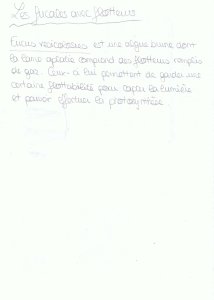 Les fucales avec flotteurs
Fucus vesiculosus est une algue brune dont
la lame apicale comprend des flotteurs remplis
de gaz. Ceux-ci lui permettent de garder une
certaine flottabilité pour capter la lumière
et pouvoir effectuer la photosynthèse.